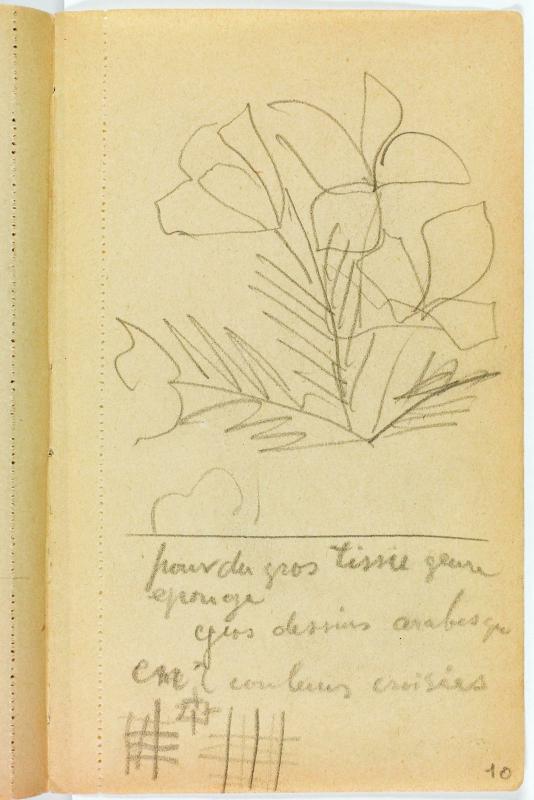 pour du gros tissu genre
eponge
gros dessins arabesque
couleurs croisées
10